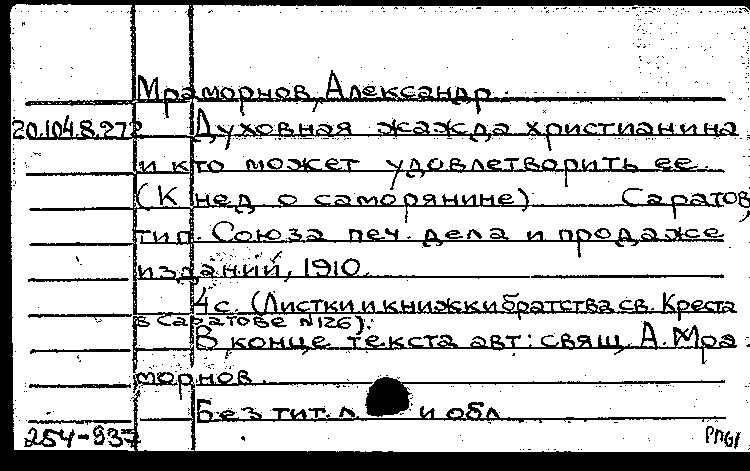 Мраморнов, Александр.
20.104.8.272 Духовная жажда христианина
и кто может удовлетворить ее.
(К нед о саморянине) Саратов,
тип. Союза печ. дела и продаже
изданий, 1910.
4с. (Листки и книжки братства св. Креста
в Саратове №126).
В конце текста авт: свящ. А. Мра-
морнов.
Без тит. л. и обл.
254-937